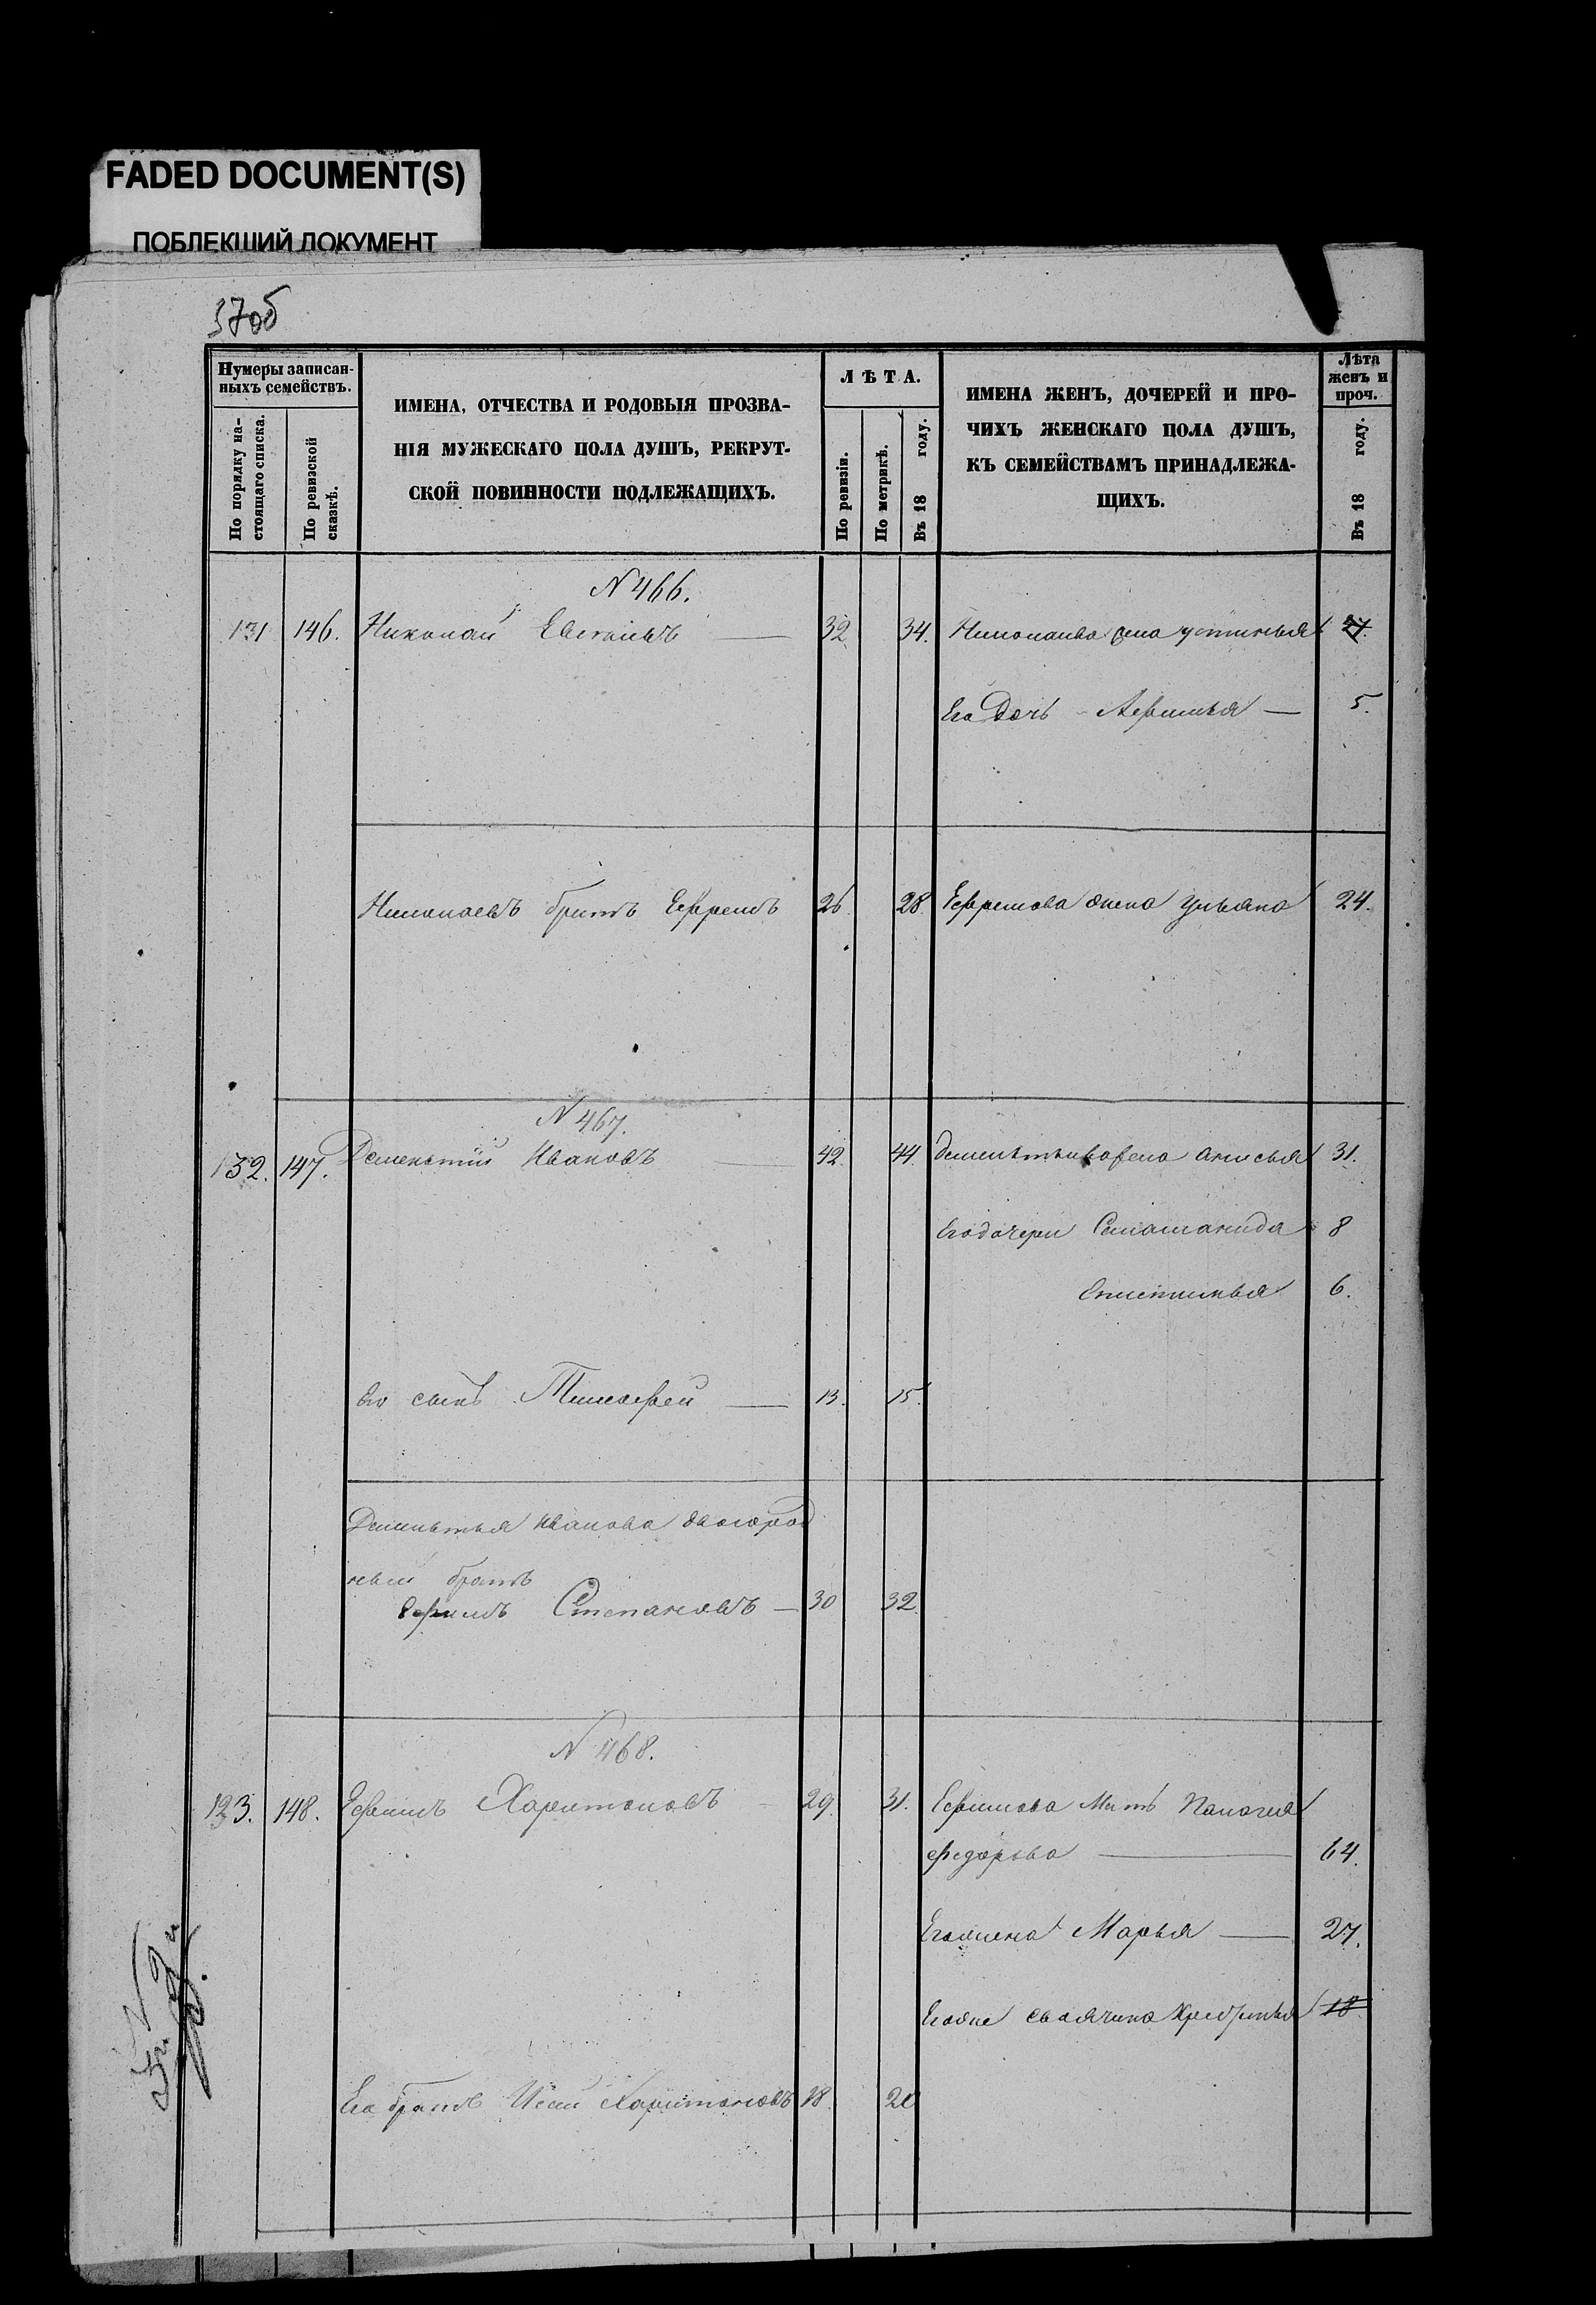 FADED DOCUMENT(S)
ПОБЛЕКШИЙ ДОКУМЕНТ
37об
Нумеры записан-
ныхъ семействъ.
По порядку на-
стоящаго списка.
По ревизской
сказкѣ.
ИМЕНА, ОТЧЕСТВА И РОДОВЫЯ ПРОЗВА-
НІЯ МУЖЕСКАГО ПОЛА ДУШЪ, РЕКРУТ-
СКОЙ ПОВИННОСТИ ПОДЛЕЖАЩИХЪ.
ЛѢТА.
По ревизіи.
По метрикѣ.
Въ 18 году.
ИМЕНА ЖЕНЪ, ДОЧЕРЕЙ И ПРО-
ЧИХЪ ЖЕНСКАГО ПОЛА ДУШЪ,
КЪ СЕМЕЙСТВАМЪ ПРИНАДЛЕЖА-
ЩИХЪ.
Лѣта
женъ и
проч.
Въ 18 году.
N 466.
131 146. Николай 32 34. Николаива жена устинья 27.
Его дочь 5.
Николаевъ братъ Ефремъ 26. 28 Ефремова жена Ульяна 24.
N 467.
132. 147. Дементій Ивановъ 42. 44. Дементьива жена анисья 31.
Его дочери 8
6.
Его сынъ Тимофей 13. 15.
Дементья Иванова двоюрод
ный братъ
Ефимъ Степановъ 30 32
N 468.
133. 148. Ефимъ Харитоновъ 29. 31. Ефимова Мать Палагея
федорова 64.
Его жена Марья 27.
Его же своячина 18
Его братъ Харитоновъ 18. 20